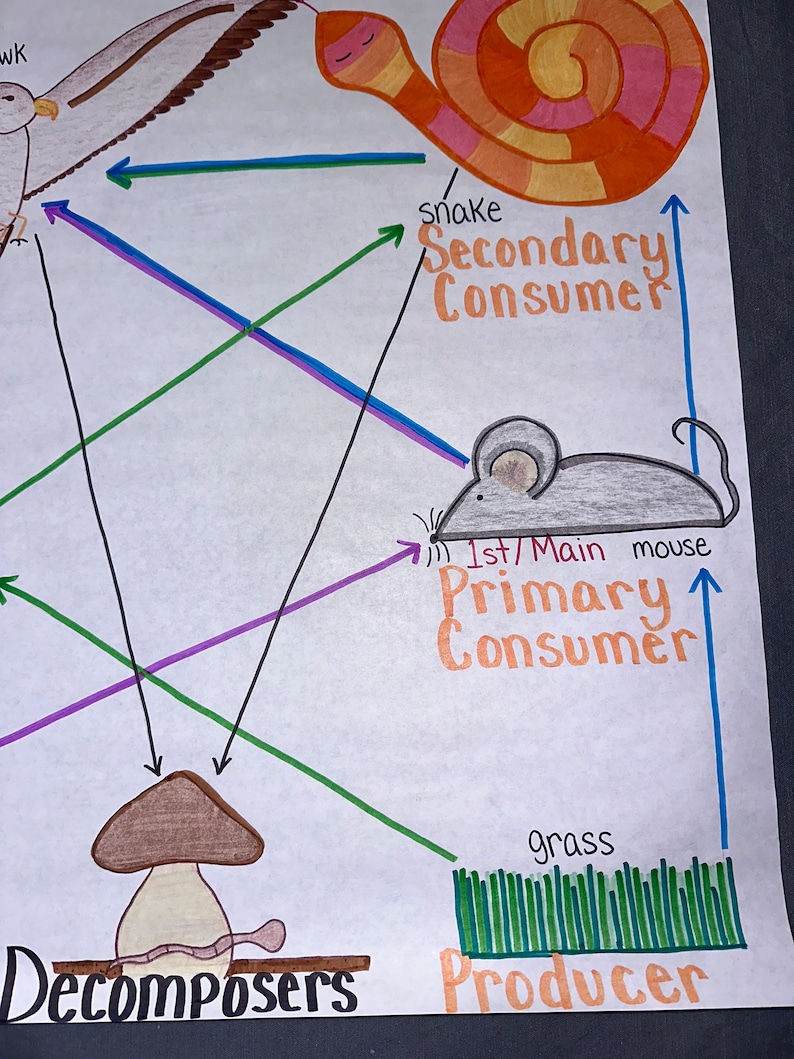 wk
snake
Secondary
Consumer
1st/Main mouse
Primary
Consumer
grass
Decomposers
Producer